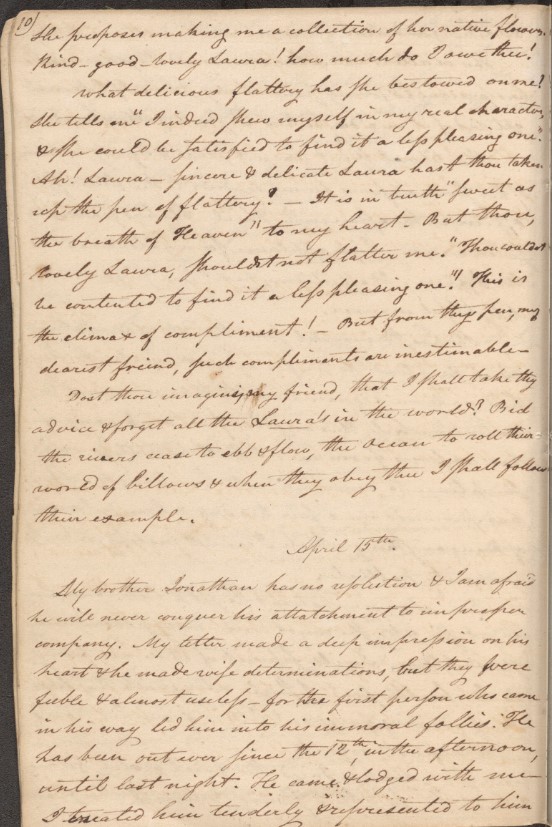 10
She proposes making me a collection of her native flowers.
Kind - good - lovely Laura! how much do I owe thee!
What delicious flattery has she bestowed on me!
She tells me "I indeed shew myself in my real character,
& she could be satisfied to find it a less pleasing one".
Ah! Laura - sincere & delicate Laura hast thou taken
up the pen of flattery? - It is in truth "sweet as
the breath of Heaven" to my heart. But thou,
lovely Laura, shouldst not flatter me. "Thou couldst
be contented to find it a less pleasing one."! This is
the climax of compliment! - But from thy pen, my
dearest friend, such compliments are inestimable -
Dost thou imagine, my friend, that I shall take thy
advice & forget all the Laura's in the world? Bid
the rivers cease to ebb & flow, the Ocean to roll their
world of billows & when they obey thee I shall follow
their example.
April 15th.
My brother Jonathan has no resolution & I am afraid
he will never conquer his attatchment to improper
company. My letter made a deep impression on his
heart & he made wise determinations, but they were
feeble & almost useless - for the first person who came
in his way led him into his immoral follies. He
has been out ever since the 12th, in the afternoon,
until last night. He came & lodged with me -
I treated him tenderly & represented to him